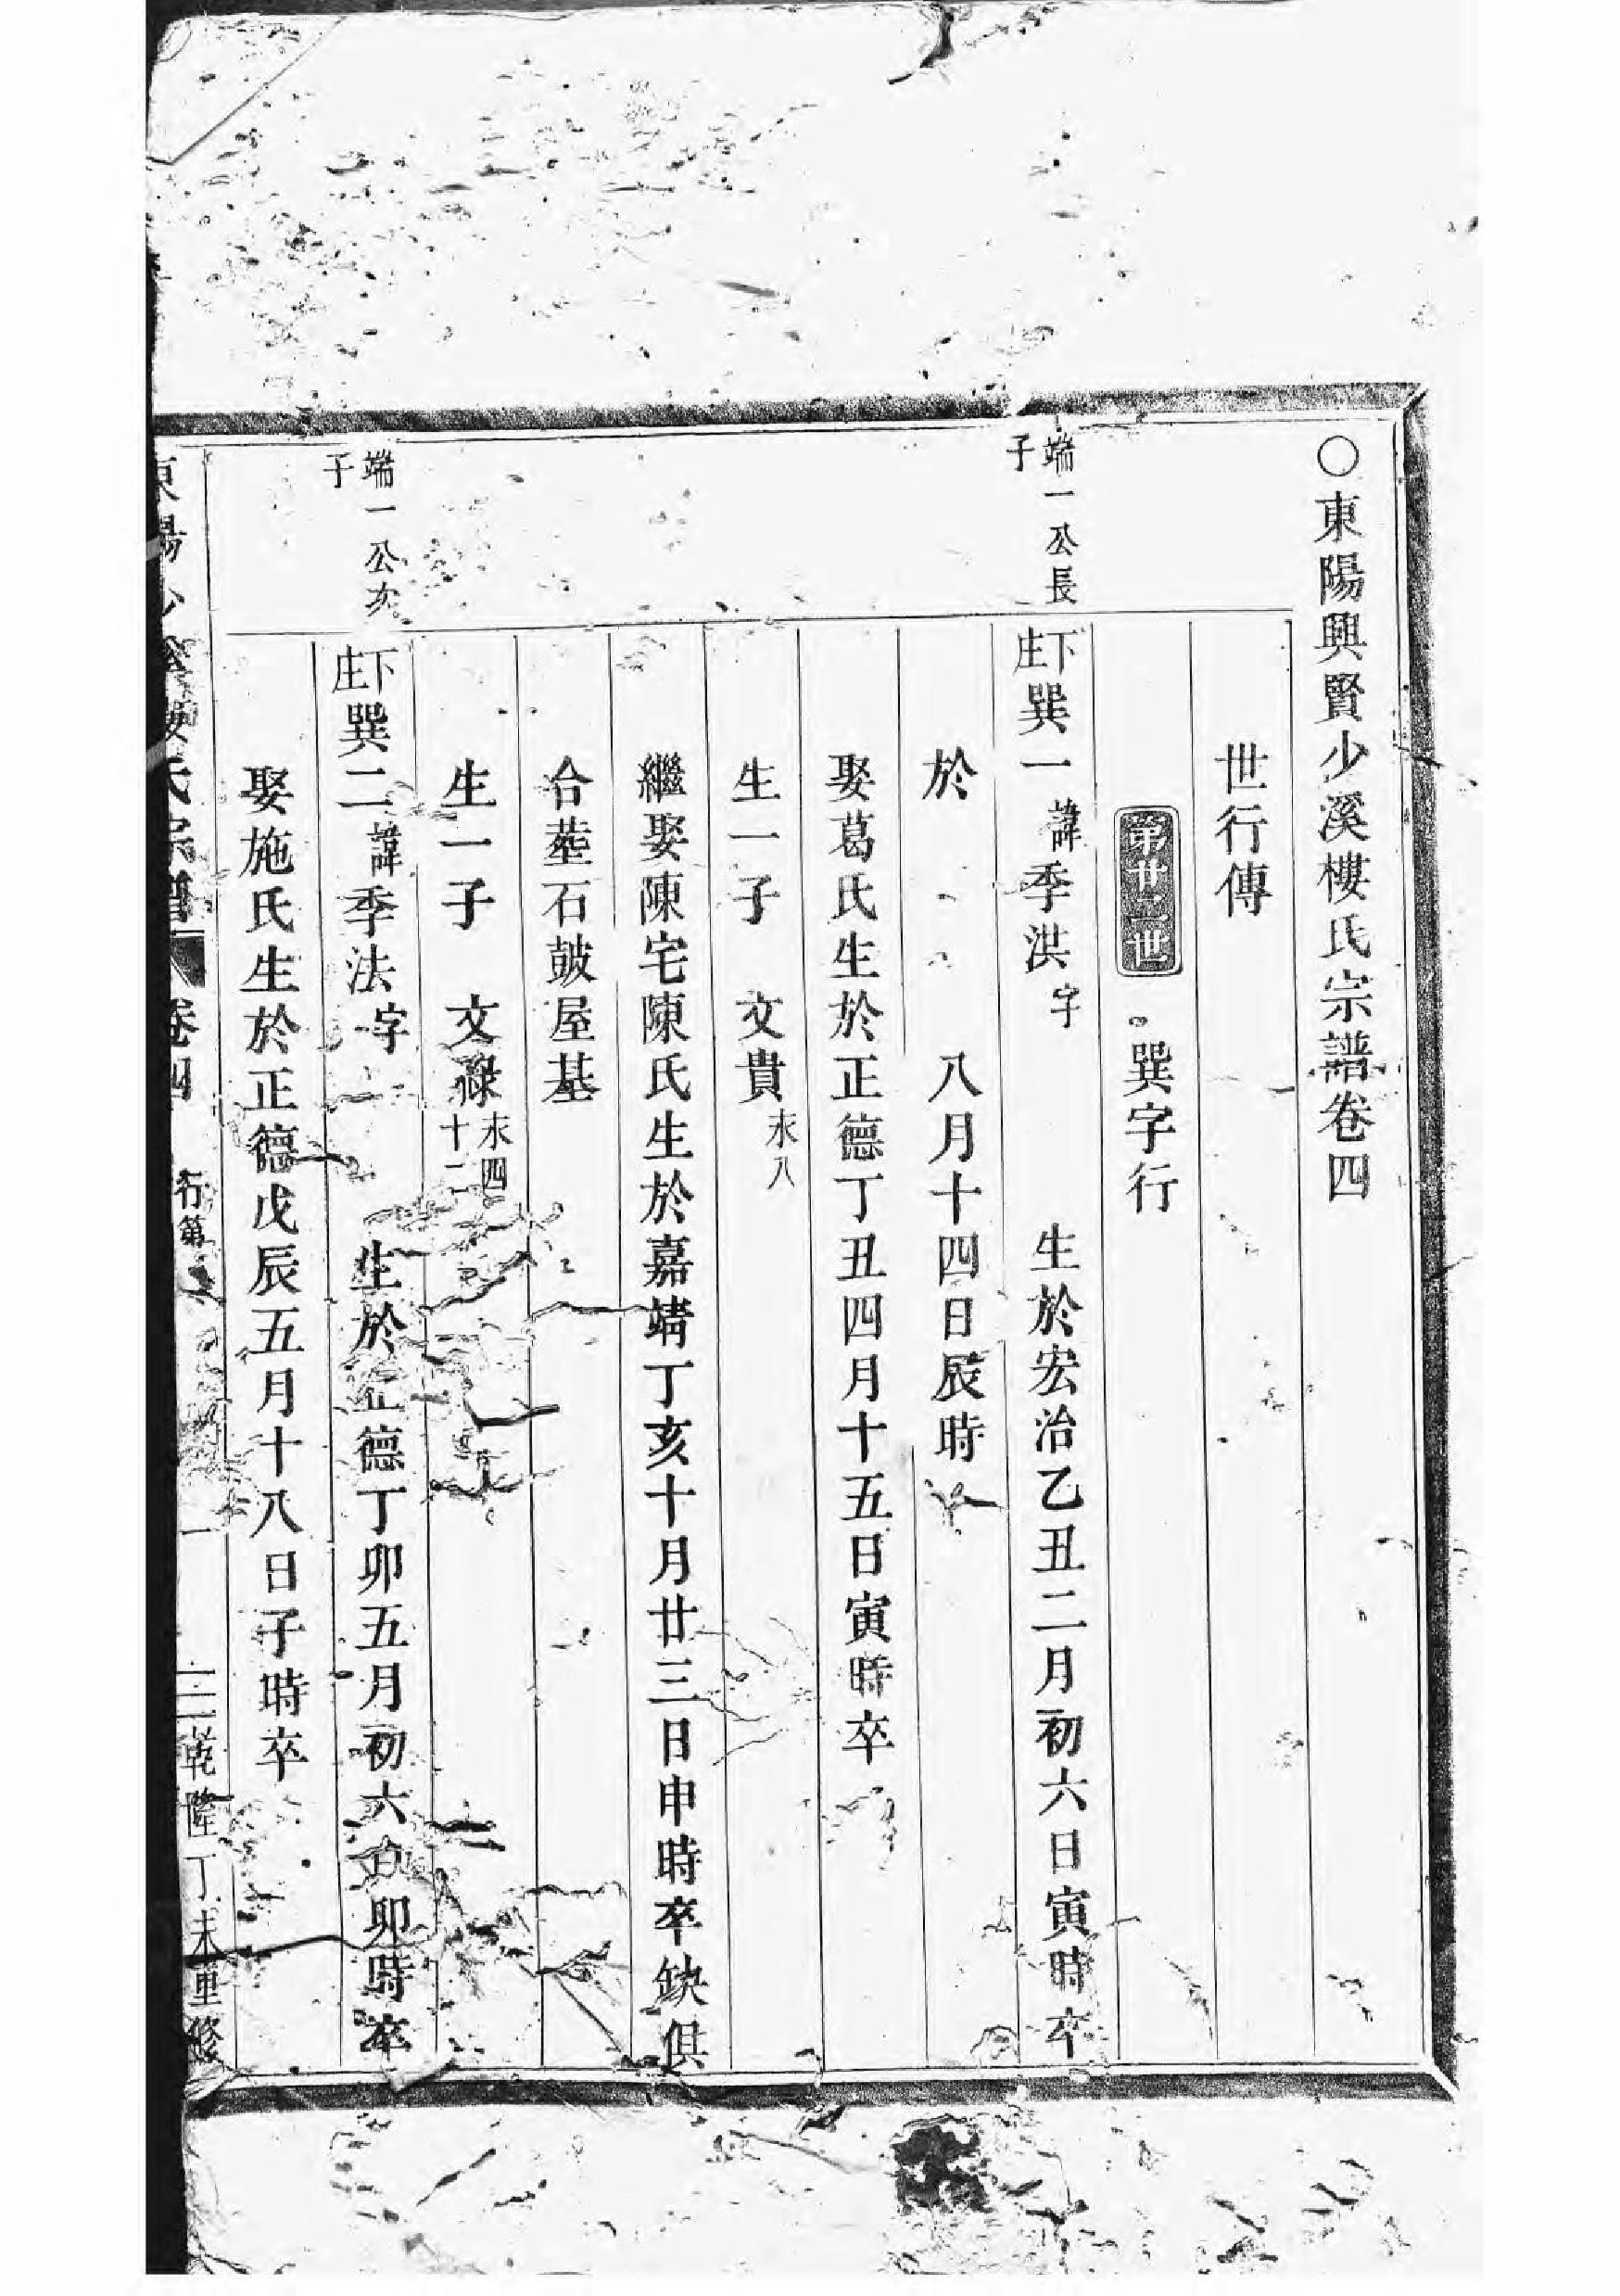 ○東陽興賢少溪樓氏宗譜卷四
世行傳
第廿二世 巽字行
端一公長子
下庄巽一諱季洪字 生於宏治乙丑二月初六日寅時卒
於 八月十四日辰時
娶葛氏生於正德丁丑四月十五日寅時卒
生一子 文貴 末八
繼娶陳宅陳氏生於嘉靖丁亥十月廿三日申時卒缺俱
合塟石皷屋基
生一子 文祿 末四十二
端一公次子
下庄巽二諱季法字 生於正德丁卯五月初六日卯時卒
娶施氏生於正德戊辰五月十八日子時卒
東陽少 氏宗譜 卷四 行第 一 乾隆丁未重修